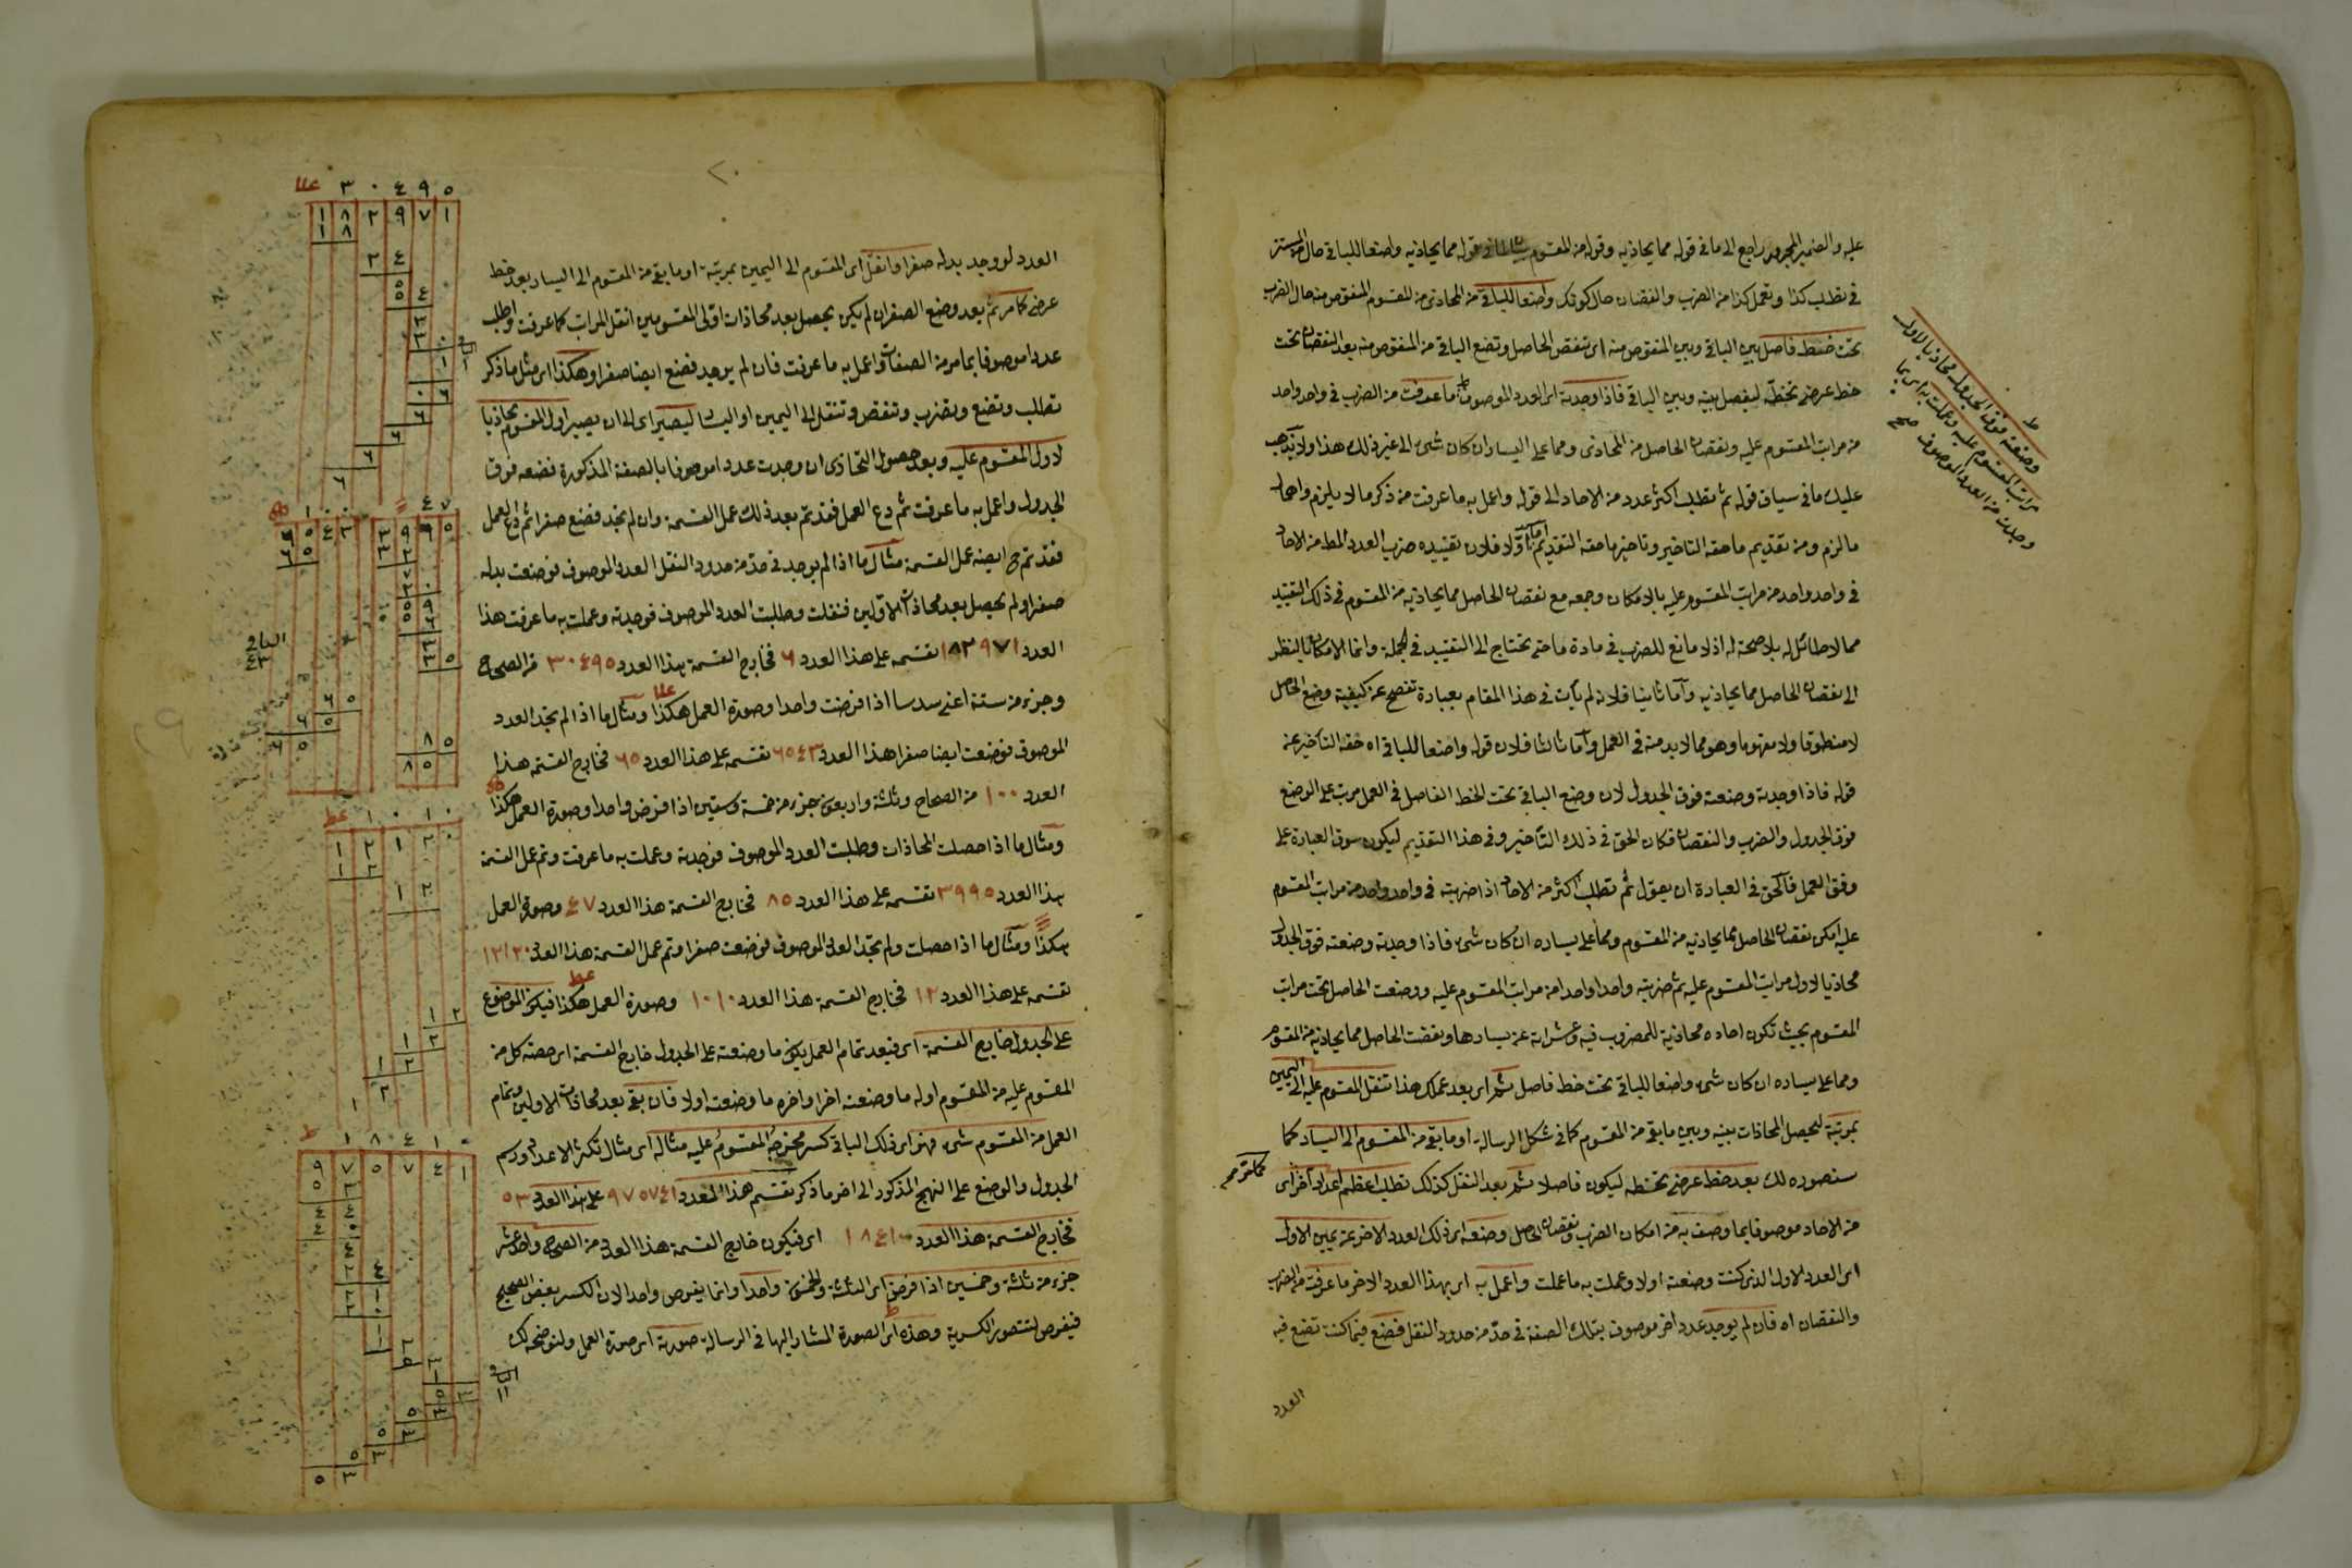 عليه والضمير المجرور راجع الى ما في قوله مما يحاذيه وقوله من المقسوم قوله مما يحاذيه واضعا للباقي حال من المستتر
في تطلب كذا وتعمل كذا من الضرب والنقصان حال كونك واضعا للباقي من المحاذى من المقسوم المنقوص منه حال الضرب
تحت خط فاصل بين الباقي وبين المنقوص منه اى تنقص الحاصل وتضع الباقي من المنقوص منه بعد النقصان تحت
خط عرضى تخطه ليفصل بينه وبين الباقي فاذا وجدته اى العدد الموصوف بما عرفت من الضرب في واحد واحد
من مراتب المقسوم عليه ونقصان الحاصل من المحاذى ومما على اليسار ان كان شئ الى غير ذلك هذا ولا يذهب
عليك ما في سياق قوله ثم تطلب اكثر عدد من الاحاد الى قوله واعمل به ما عرفت من ذكر ما لا يلزم واهمال
ما لزم ومن تقديم ما حقه التاخير وتاخير ما حقه التقديم اما اولا فلان تقييده ضرب العدد المط من الاحاد
في واحد واحد من مراتب المقسوم عليه بالامكان وجمعه مع نقصان الحاصل مما يحاذيه من المقسوم في ذلك التقييد
مما لا طائل له بل لا صحة له اذ لا مانع للضرب في مادة ما حتى تحتاج الى التقييد في الجملة وانما الامكان بالنظر
الى نقصان الحاصل مما يحاذيه واما ثانيا فلانه لم يأت في هذا المقام بعبارة تفصح عن كيفية وضع الحاصل
لا منطوقا ولا مفهوما وهو مما لا بد منه في العمل واما ثالثا فلان قوله واضعا للباقي اه حقه التاخير عن
قوله فاذا وجدته وضعته فوق الجدول لان وضع الباقي تحت الخط الفاصل في العمل مرتب على الوضع
فوق الجدول والضرب والنقصان فكان الحق في ذلك التأخير وفي هذا التقديم ليكون سوق العبارة على
وفق العمل فالحق في العبارة ان يقول ثم تطلب اكثر من الاحاد اذا ضربته في واحد واحد من مراتب المقسوم
عليه امكن نقصان الحاصل مما يحاذيه من المقسوم ومما على يساره ان كان شئ فاذا وجدته وضعته فوق الجدول
محاذيا لاول مراتب المقسوم عليه ثم ضربته واحدا واحدا من مراتب المقسوم عليه ووضعت الحاصل تحت مراتب
المقسوم بحيث تكون احاده محاذية للمضروب فيه وعشراته عن يسارها ونقصت الحاصل مما يحاذيه من المقسوم
ومما على يساره ان كان شئ واضعا للباقي تحت خط فاصل ثم اى بعد عملك هذا تنقل المقسوم عليه الى اليمين
بمرتبة لتحصل المحاذات بينه وبين ما بقى من المقسوم كما في شكل الرسالة او ما بقى من المقسوم الى اليسار كما
سنصوره لك بعد خط عرضى تخطه ليكون فاصلا ثم بعد النقل كذلك تطلب اعظم عدد آخر اى
من الاحاد موصوفا بما وصف به من امكان الضرب ونقصان الحاصل وضعه اى ذلك العدد الاخر عن يمين الاول
اى العدد الاول الذى كنت وضعته اولا وعملت به ما عملت واعمل به اى بهذا العدد الاخر ما عرفت من الضرب
والنقصان اه فان لم يوجد عدد اخر موصوف بتلك الصفة في حد من حدود النقل فضع فيما كنت تضع فيه
العدد
ط
وضعته فوق الجدول محاذيا لاول
مراتب المقسوم عليه وعملت به اى بما
وجدت من العدد الموصوف صح
٢٠
العدد لو وجد بدله صفرا وانقل اى المقسوم الى اليمين بمرتبة او ما بقى من المقسوم الى اليسار بعد خط
عرضى كما مر ثم بعد وضع الصفر ان لم يكن يحصل بعد محاذات اولى المقسومين انقل المراتب كما عرفت واطلب
عددا موصوفا بما مر من الصفات واعمل به ما عرفت فان لم يوجد فضع ايضا صفرا وهكذا اى مثل ما ذكر
تطلب وتضع وتضرب وتنقص وتنقل الى اليمين او اليسار ليصير اى الى ان يصير اول المقسوم محاذيا
لاول المقسوم عليه وبعد حصول التحاذى ان وجدت عددا موصوفا بالصفة المذكورة فضعه فوق
الجدول واعمل به ما عرفت ثم دع العمل فقد تم بعد ذلك عمل القسمة وان لم تجد فضع صفرا ثم دع العمل
فقد تم ح ايضا عمل القسمة مثال ما اذا لم يوجد في حد من حدود النقل العدد الموصوف فوضعت بدله
صفرا ولم يحصل بعد محاذاة الاولين فنقلت وطلبت العدد الموصوف فوجدته وعملت به ما عرفت هذا
العدد ١٨٢٩٧١ نقسمه على هذا العدد ٦ فخارج القسمة هذا العدد ٣٠٤٩٥ من الصحاح
وجزء من ستة اعنى سدسا اذا فرضت واحدا وصورة العمل هكذا ومثال ما اذا لم تجد العدد
الموصوف فوضعت ايضا صفرا هذا العدد ٦٥٤٣ نقسمه على هذا العدد ٦٥ فخارج القسمة هذا
العدد ١٠٠ من الصحاح وثلثة واربعون جزء من خمسة وستين اذا فرض واحدا وصورة العمل هكذا
ومثال ما اذا حصلت المحاذات وطلبت العدد الموصوف فوجدته وعملت به ما عرفت وتم عمل القسمة
هذا العدد ٣٩٩٥ نقسمه على هذا العدد ٨٥ فخارج القسمة هذا العدد ٤٧ وصورة العمل
هكذا ومثال ما اذا حصلت ولم تجد العدد الموصوف فوضعت صفرا وتم عمل القسمة هذا العدد ١٢١٢٠
نقسمه على هذا العدد ١٢ فخارج القسمة هذا العدد ١٠١٠ وصورة العمل هكذا فيكون الموضوع
على الجدول خارج القسمة اى فبعد تمام العمل يكون ما وضعته على الجدول خارج القسمة اى حصة كل من
المقسوم عليه من المقسوم اوله ما وضعته اخرا واخره ما وضعته اولا فان بقى بعد محاذات الاولين وتمام
العمل من المقسوم شئ فهو اى ذلك الباقي كسر مخرجه المقسوم عليه مثاله اى مثال تكثر الاعداد ورسم
الجدول والوضع على النهج المذكور الى اخر ما ذكر نقسم هذا العدد ٩٧٥٧٤١ على هذا العدد ٥٣
فخارج القسمة هذا العدد ١٨٤١٠ اى فيكون خارج القسمة هذا العدد من الصحاح واحد عشر
جزء من ثلثة وخمسين اذا فرض اى الثلثة والخمسون واحدا وانما يفرض واحدا لان الكسر بعض الصحيح
فيفرض لتتصور الكسرية وهذه اى الصورة المشار اليها في الرسالة صورته اى صورة العمل ولنوضحه لك
٣ ٠ ٤ ٩ ٥
١ ٨ ٢ ٩ ٧ ١
١ ٨
٢ ٤
الباقي
١
٤ ٧
٣ ٩ ٩ ٥
٦ ٥ ٤ ٣
٦ ٥
الباقي
٤٣
١ ٠ ١ ٠
١ ٢ ١ ٢ ٠
١ ٢
١ ٢
١ ٨ ٤ ١ ٠
٩ ٧ ٥ ٧ ٤ ١
الباقي
١١
٥ ٣